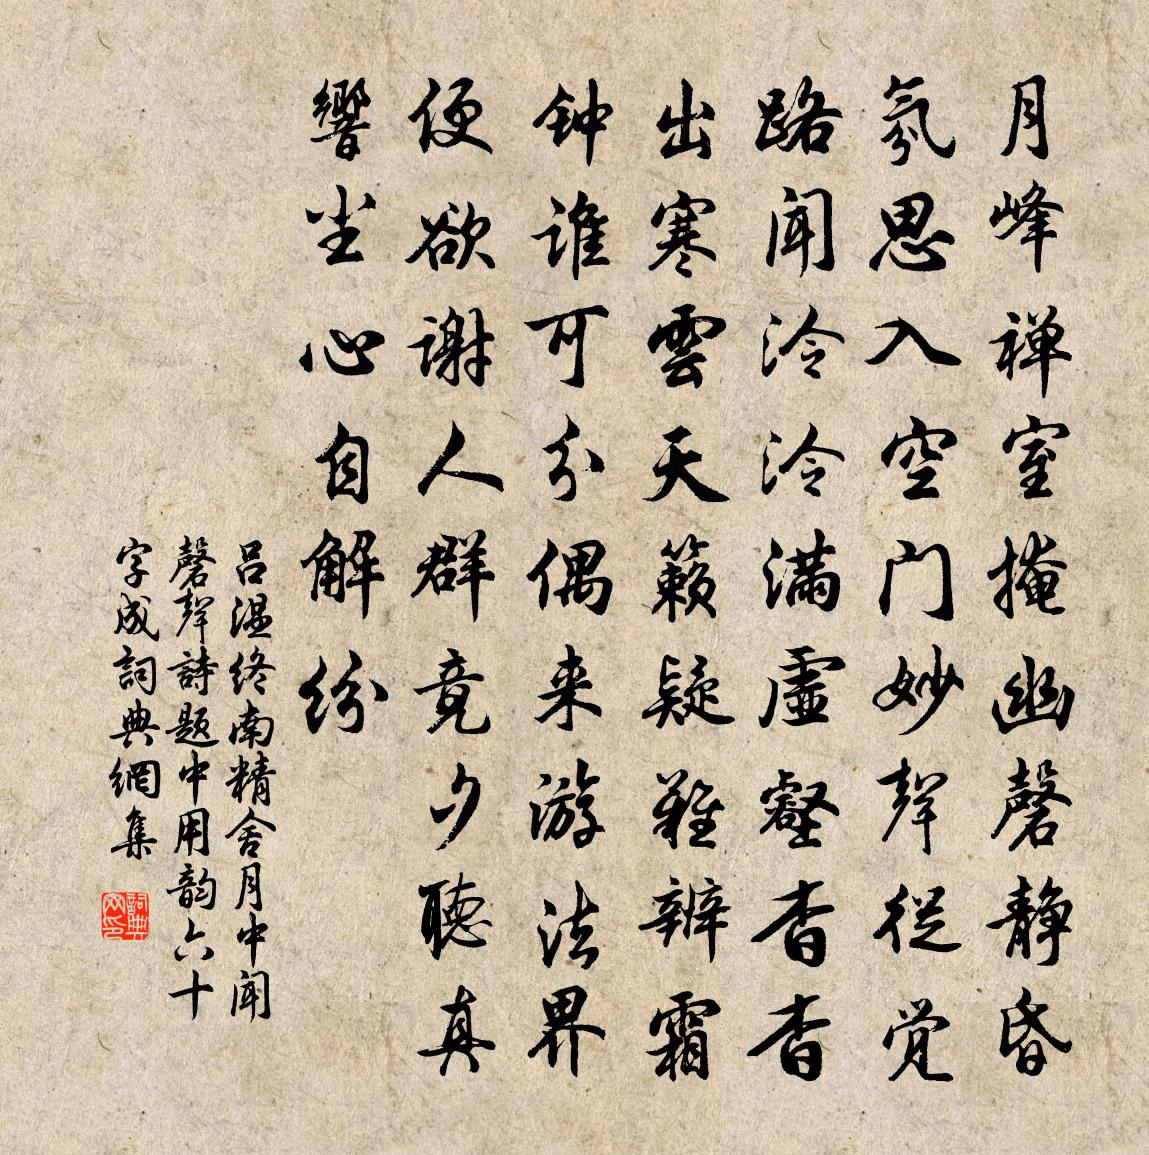 月峰禅室掩幽磬静昏
氛思入空门妙聲從觉
路闻泠泠满虚壑杳杳
出寒雲天籁疑難辨霜
钟谁可分偶来游法界
便欲谢人群竟夕聽真
響尘心自解纷
吕温终南精舍月中闻
磬聲詩题中用韵六十
字成詞典網集
詞典网印